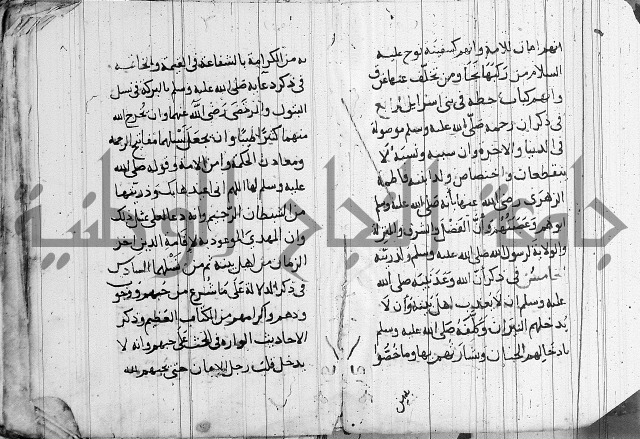 انهم امان للامة وانهم كسفينة نوح عليه
السلام من ركبها نجا ومن تخلف عنها غرق
وانهم كباب حطه في بنى اسرائيل الرابع
في ذكر ان رحمه صلى الله عليه وسلم موصولة
في الدنيا والاخرة وان سببه ونسبه لا
ينقطعان واختصاص ولد ابنته فاطمة
الزهرى رضى الله عنها بأنه صلى الله عليه وسلم
ابوهم وعصبتهم وأن الفضل والشرف والمنزلة
والولاية لرسول الله صلى الله عليه وسلم وذريته
خامس في ذكر أن الله وعد نبيه صلى الله
عليه وسلم ان لا يعذب اهل بيته وان لا
يدخلهم النيران وكلفه صلى الله عليه وسلم
بادخالهم الجنان وبشارتهم بها وما خصوا
به من الكرامة بالشفاعة في القيمة والخاتمه
في ذكر دعايه صلى الله عليه وسلم بالبركة في نسل
البتول والمرتضى رضى الله عنهما وان يخرج الله
منهما كثيرا طيبا وان يجعل نسلهما مفاتيح الرحمة
ومعادن الحكمة وامن الامة وقوله صلى الله
عليه وسلم لها اللهم انى اعيذها بك وذريتها
من الشيطان الرجيم وانه دعا لعلى مثل ذلك
وان المهدى الموعود به لاقامة الدين اخر
الزمان من اهل بيته ثم من نسلهما السادس
في ذكر الدلالة على ما شرع من حبهم
ودهم واكرامهم من الكتاب العظيم وذكر
الاحاديث الواردة في الحث على حبهم وانه لا
يدخل قلب رجل الايمان حتى يحبهم لله
جامعة النجاح الوطنية